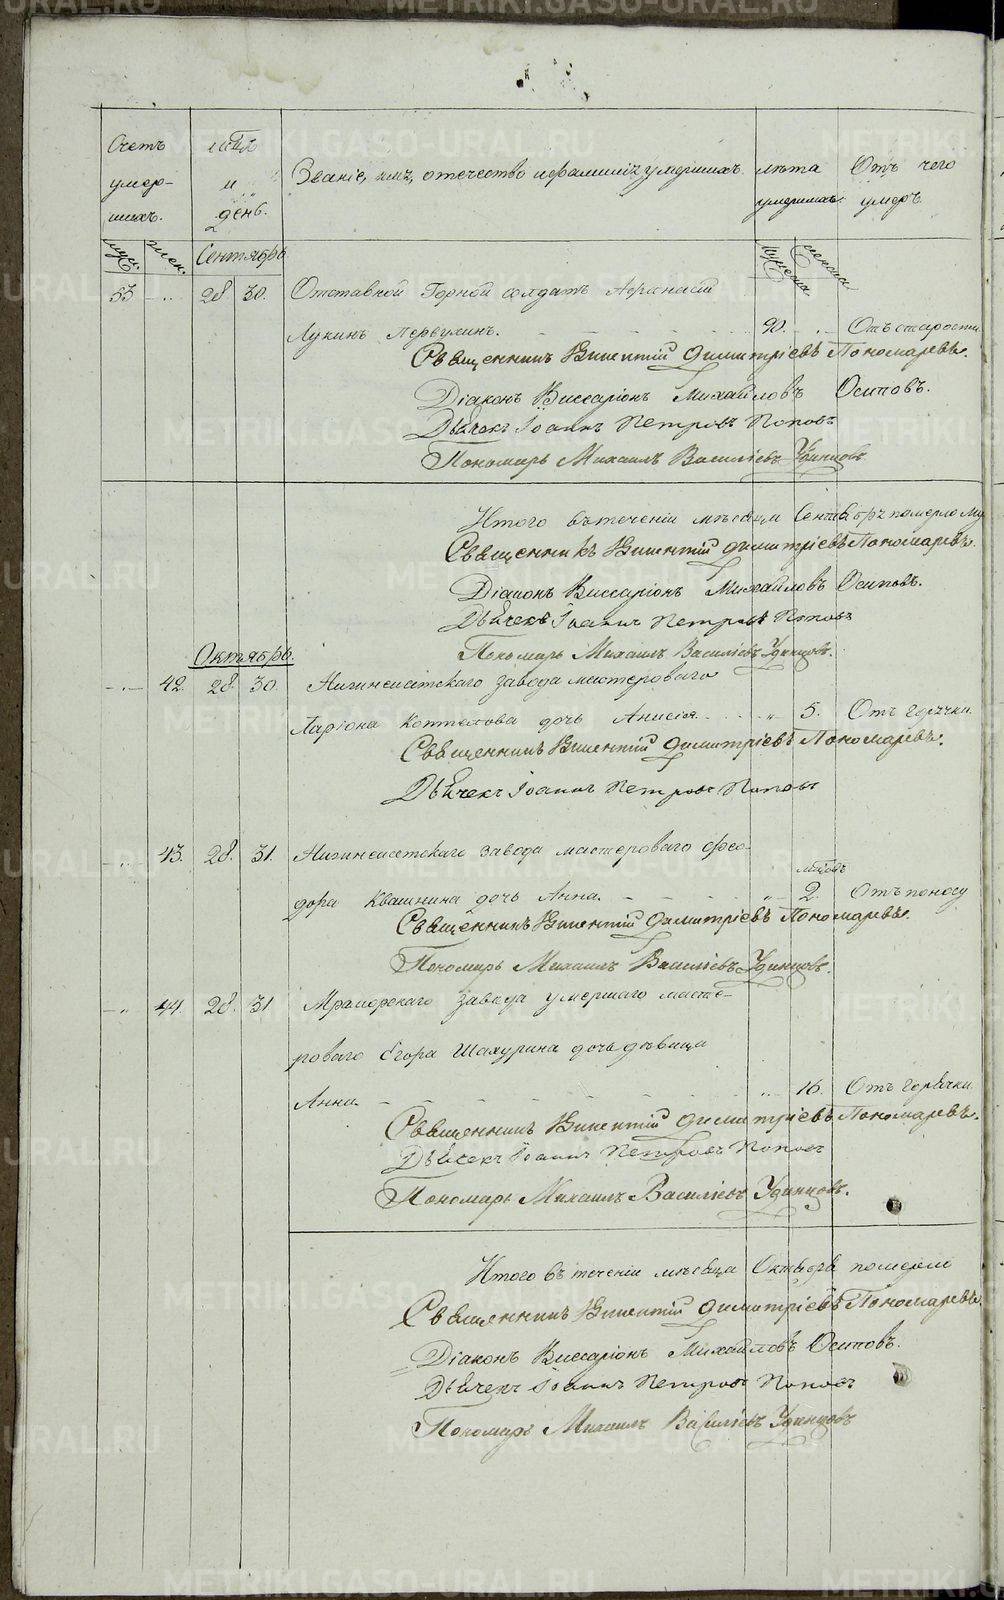 Счетъ умер- шихъ.
мѣсяц и день.
Званіе, имя, отечество и фамилія умершихъ.
лѣта умершихъ.
Отъ чего умеръ.
муж. жен. Сентябрь
53 28 30. Отставной Горной солдатъ Афанасій
Лукинъ Первухинъ. 90. Отъ старости
Священникъ Викентій Димитріевъ Пономаревъ.
Діаконъ Виссаріонъ Михайловъ Осиповъ.
Дьячекъ Іоаннъ Петровъ Поповъ
Пономарь Михаилъ Василіевъ Удинцовъ
Итого въ теченіи мѣсяца Сентября померло му
Священникъ Викентій Димитріевъ Пономаревъ.
Діаконъ Виссаріонъ Михайловъ Осиповъ.
Дьячекъ Іоаннъ Петровъ Поповъ
Пономарь Михаилъ Василіевъ Удинцовъ.
Октябрь.
42. 28. 30. Нижнеисетскаго завода мастероваго
Ларіона дочь Анисія 5. Отъ горячки
Священникъ Викентій Димитріевъ Пономаревъ.
Дьячекъ Іоаннъ Петровъ Поповъ
43. 28. 31. Нижнеисетскаго завода мастероваго Фео-
дора Квашнина дочь Анна. 2. Отъ поносу
Священникъ Викентій Димитріевъ Пономаревъ.
Пономарь Михаилъ Василіевъ Удинцовъ.
44. 28. 31 Мраморскаго завода умершаго масте-
роваго Егора Шахурина дочь дѣвица
Анна. 16. Отъ горячки
Священникъ Викентій Димитріевъ Пономаревъ.
Дьячекъ Іоаннъ Петровъ Поповъ
Пономарь Михаилъ Василіевъ Удинцовъ.
Итого въ теченіи мѣсяца Октября померло
Священникъ Викентій Димитріевъ Пономаревъ
Діаконъ Виссаріонъ Михайловъ Осиповъ.
Дьячекъ Іоаннъ Петровъ Поповъ
Пономарь Михаилъ Василіевъ Удинцовъ
METRIKI.GASO-URAL.RU